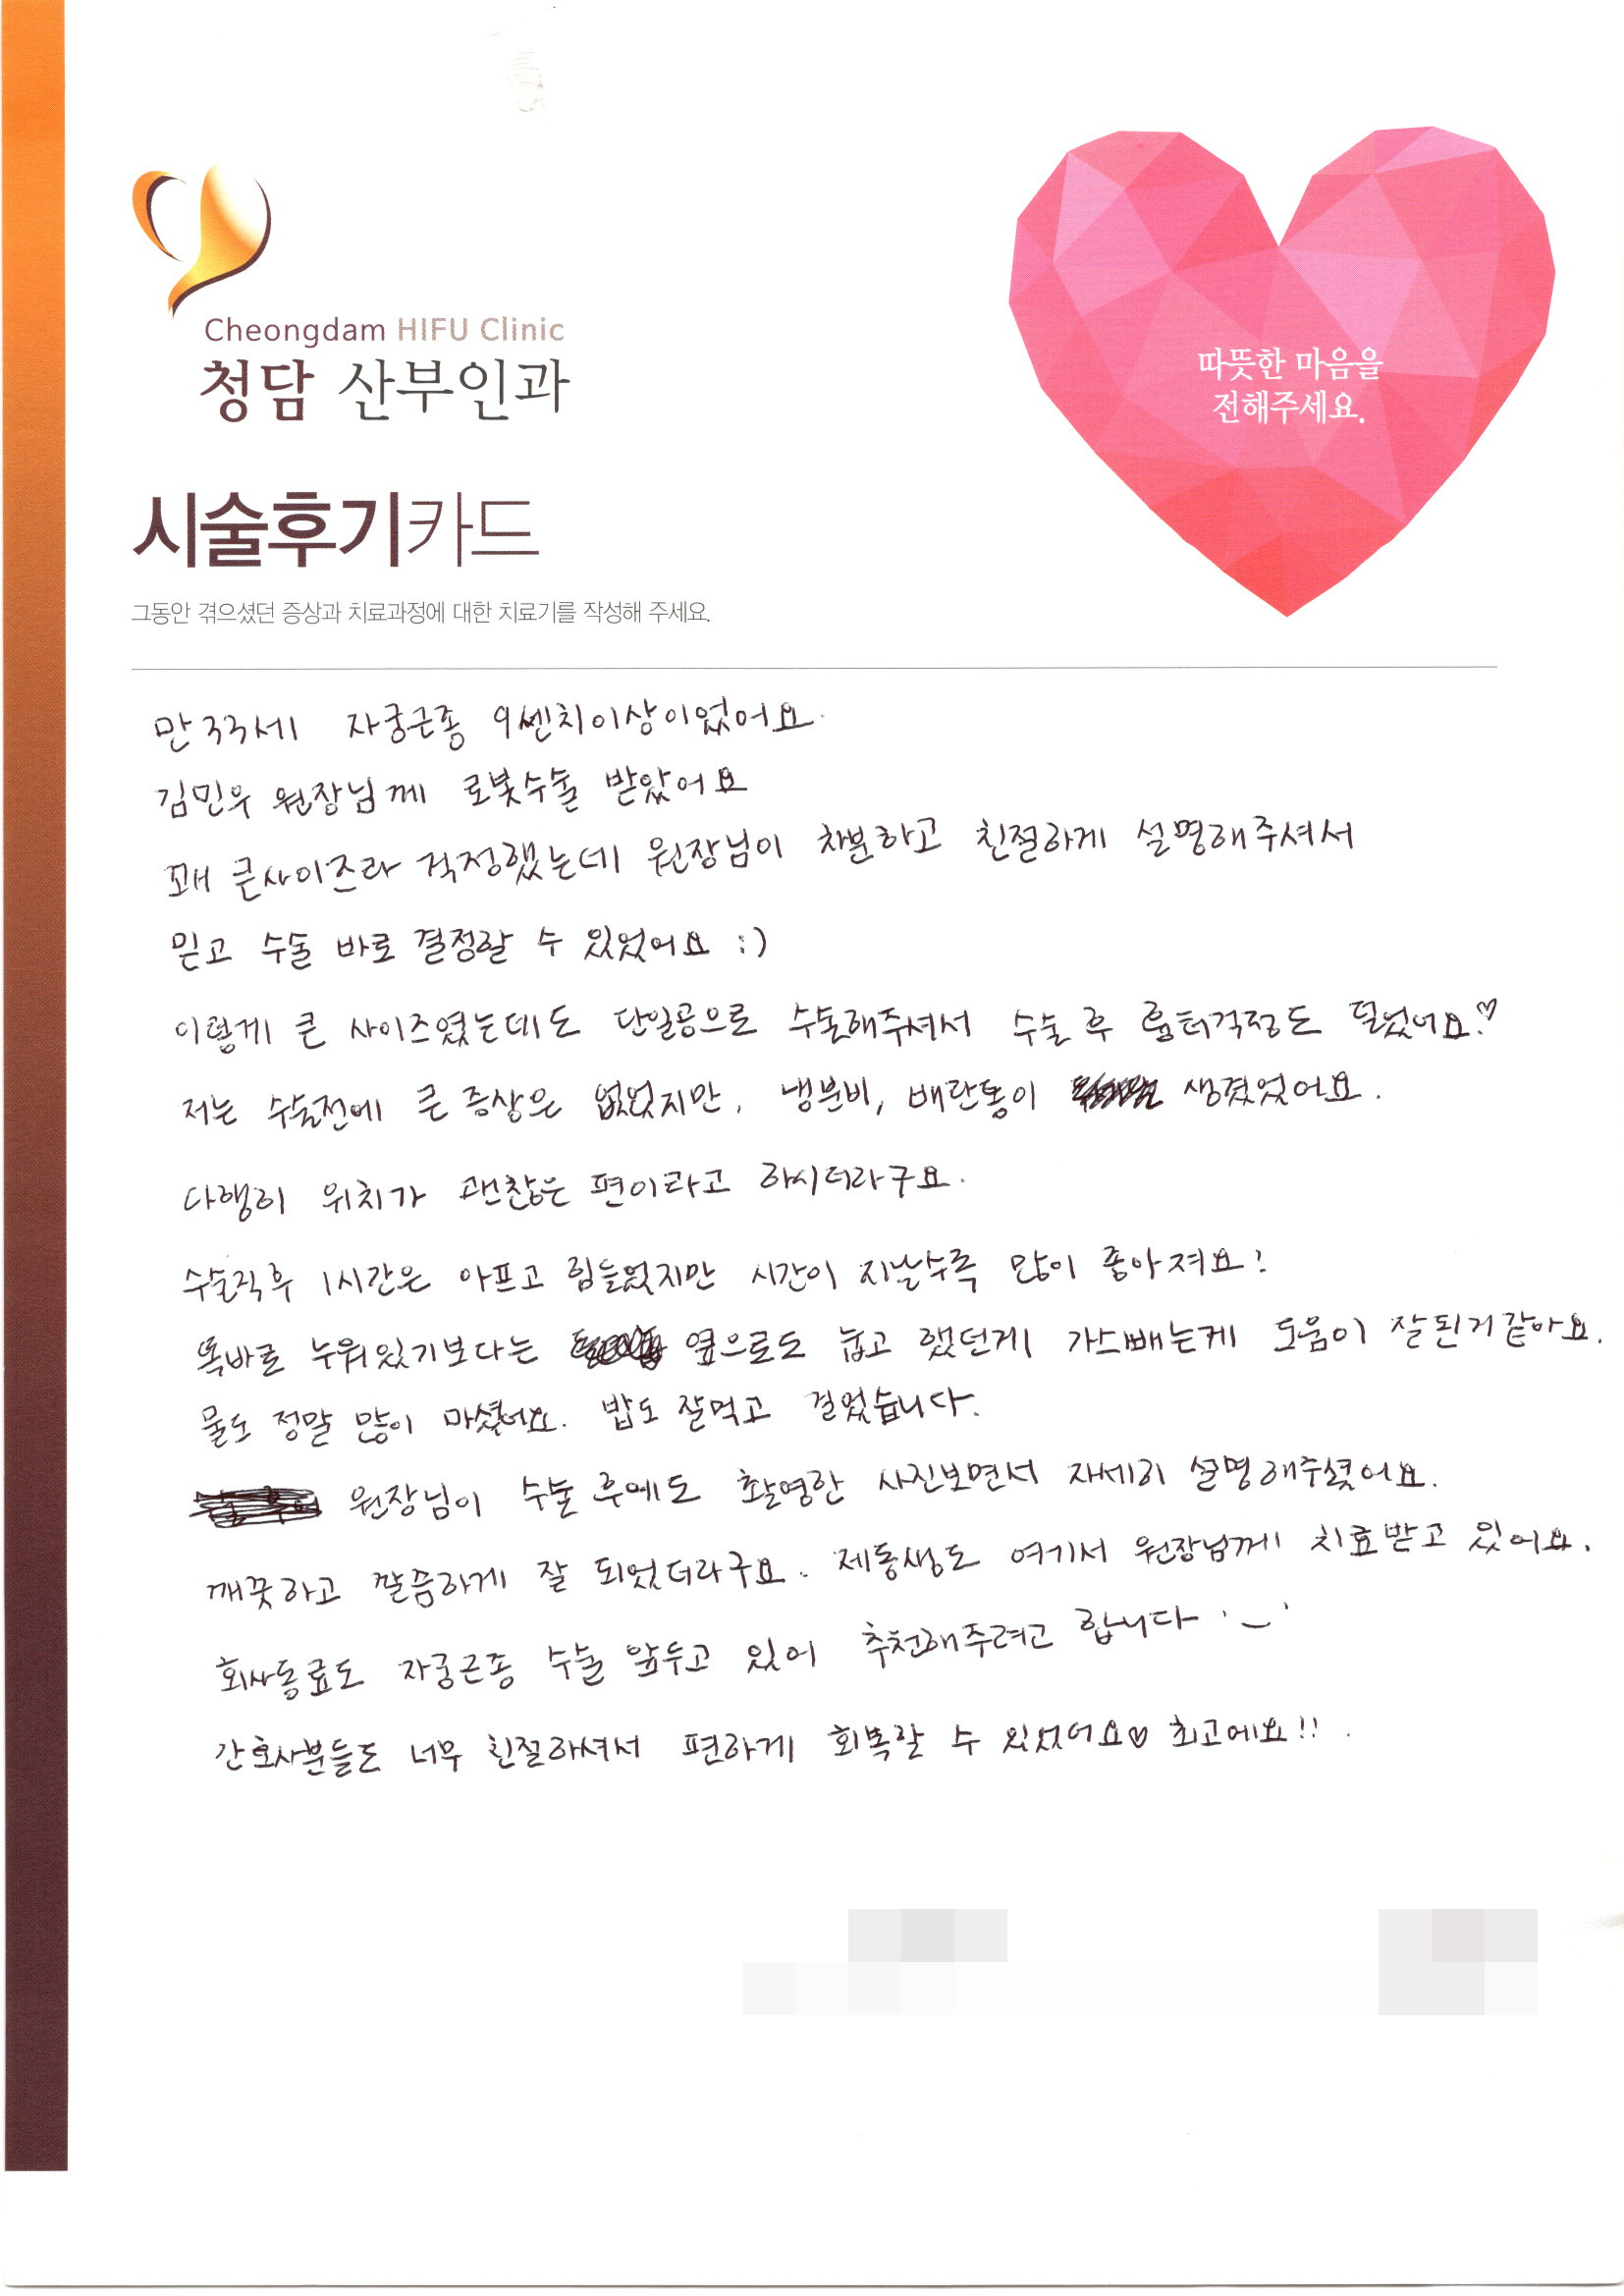 Cheongdam HIFU Clinic
청담 산부인과
따뜻한 마음을
전해주세요.
시술후기카드
그동안 겪으셨던 증상과 치료과정에 대한 치료기를 작성해 주세요.
만 33세 자궁근종 9센치이상이었어요.
김민우 원장님께 로봇수술 받았어요
꽤 큰사이즈라 걱정했는데 원장님이 차분하고 친절하게 설명해주셔서
믿고 수술 바로 결정할 수 있었어요 :)
이렇게 큰 사이즈였는데도 단일공으로 수술해주셔서 수술 후 흉터걱정도 덜었어요!♡
저는 수술전에 큰 증상은 없었지만, 냉분비, 배란통이 생겼었어요.
다행히 위치가 괜찮은 편이라고 하시더라구요.
수술직후 1시간은 아프고 힘들었지만 시간이 지날수록 많이 좋아져요!
똑바로 누워있기보다는 옆으로도 눕고 했던게 가스빼는게 도움이 잘된거같아요.
물도 정말 많이 마셨어요. 밥도 잘먹고 걸었습니다.
원장님이 수술 후에도 촬영한 사진보면서 자세히 설명해주셨어요.
깨끗하고 깔끔하게 잘 되었더라구요. 제동생도 여기서 원장님께 치료받고 있어요.
회사동료도 자궁근종 수술 앞두고 있어 추천해주려고 합니다 '‿'
간호사분들도 너무 친절하셔서 편하게 회복할 수 있었어요♡ 최고에요!! .